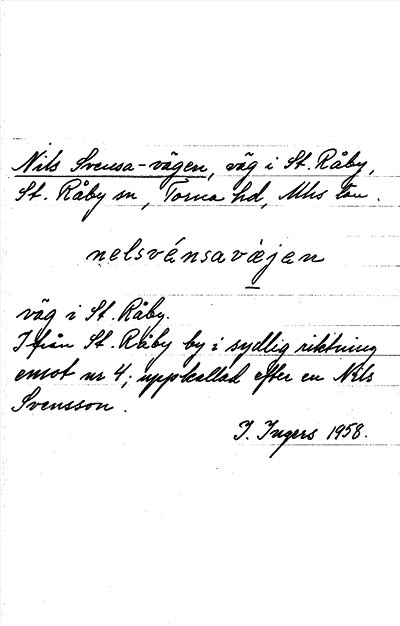 Nils Svensa-vägen, väg i St. Råby,
St. Råby sn, Torna hd, Mhs län.
nelsvénsavæjen
väg i St. Råby.
Ifrån St. Råby by i sydlig riktning
emot nr 4; uppkallad efter en Nils
Svensson.
I. Ingers 1958.